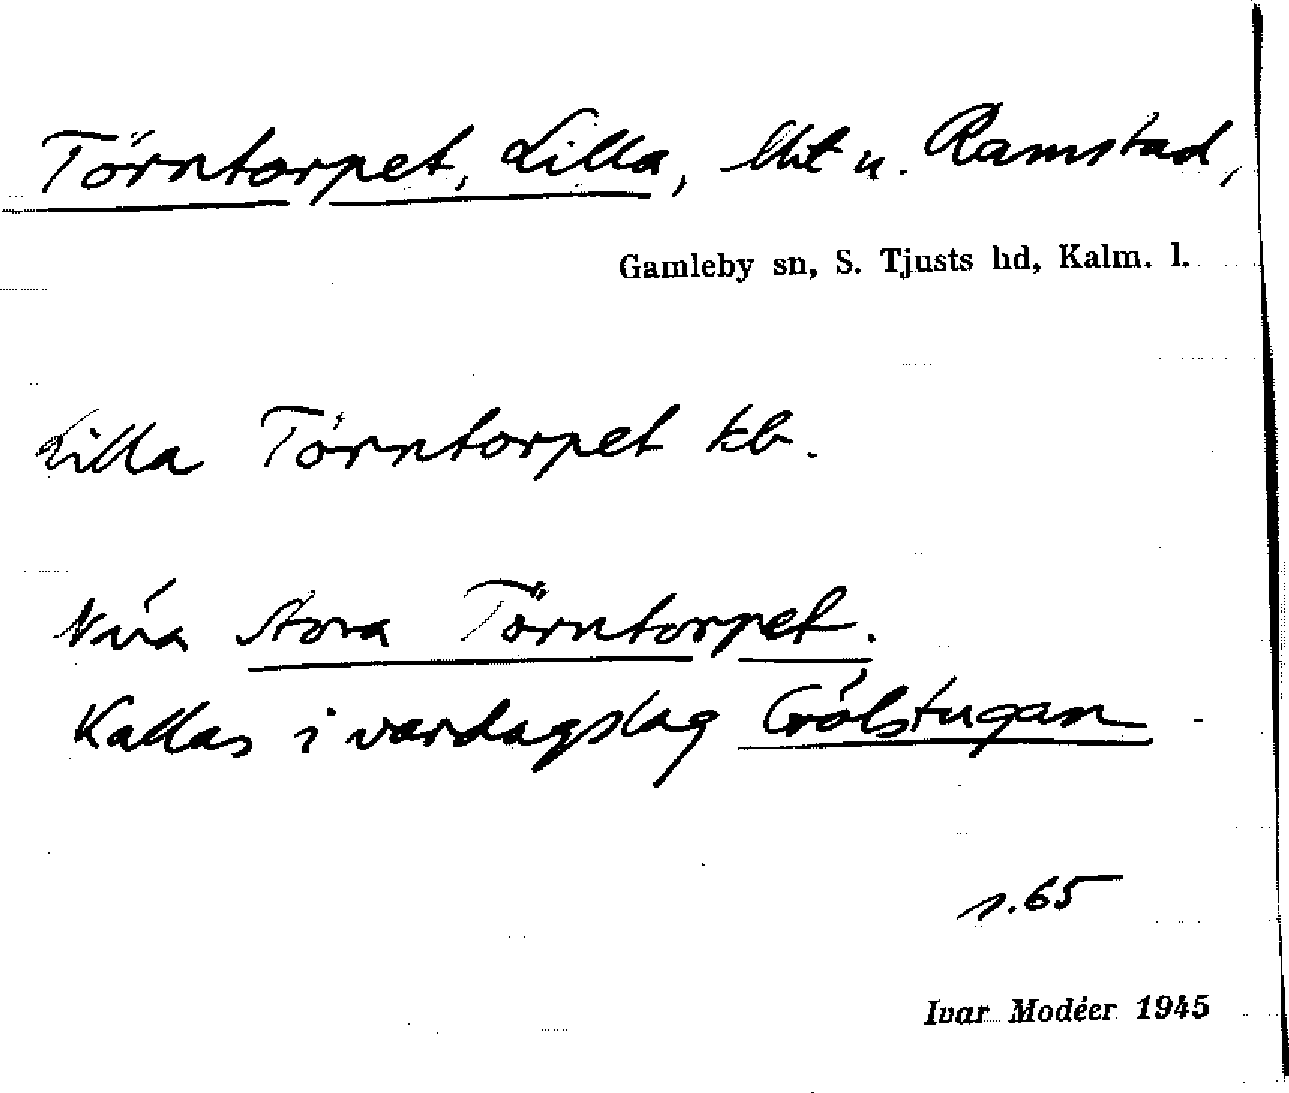 Törntorpet, Lilla, lht u. Ramstad,
Gamleby sn, S. Tjusts hd, Kalm. l.
Lilla Törntorpet kb.
Nära Stora Törntorpet.
Kallas i vardagslag Gölstugan
s. 65
Ivar Modéer 1945